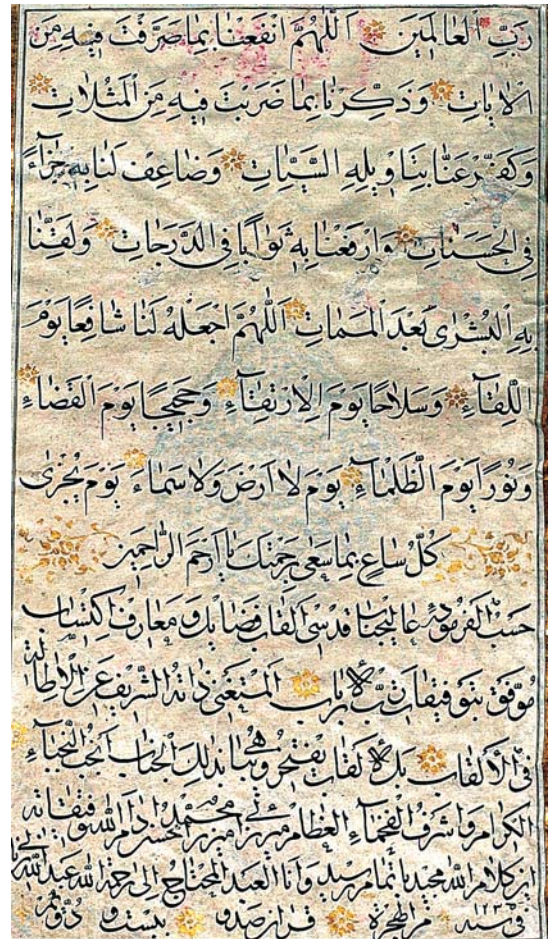 رَبِّ الْعَالَمِينَ اَللّٰهُمَّ انْفَعْنَا بِمَا صَرَّفْتَ فِيهِ مِنَ
الْاٰيَاتِ وَذَكِّرْنَا بِمَا ضَرَبْتَ فِيهِ مِنَ الْمَثُلَاتِ
وَكَفِّرْ عَنَّا بِتَاْوِيلِهِ السَّيِّئَاتِ وَضَاعِفْ لَنَا بِهِ جَزَآءً
فِي الْحَسَنَاتِ وَارْفَعْنَا بِهِ ثَوَابًا فِي الدَّرَجَاتِ وَلَقِّنَّا
بِهِ الْبُشْرٰى بَعْدَ الْمَمَاتِ اَللّٰهُمَّ اجْعَلْهُ لَنَا شَافِعًا يَوْمَ
اللِّقَآءِ وَسَلَاحًا يَوْمَ الْاِرْتِقَآءِ وَحَجِيجًا يَوْمَ الْقَضَآءِ
وَنُورًا يَوْمَ الظَّلْمَآءِ يَوْمَ لَا اَرْضَ وَلَا سَمَآءَ يَوْمَ يُجْزٰى
كُلُّ سَاعٍ بِمَا سَعٰى بِرَحْمَتِكَ يَا اَرْحَمَ الرَّاحِمِينَ
حسب الفرمودهٔ عاليجناب قدسى القاب فضايل و معارف اكتساب
موفق بتوفيقات رب الارباب المستغنى ذاته الشريف عن الاطالة
فى الالقاب بل الالقاب تفتخر وتباهى بذلك الجناب انجب النجبآء
الكرام و اشرف الفخمآء العظام ميرزا محمد الحسن دام الله توفيقاته
اين كلام الله مجيد باتمام رسيد وانا العبد المحتاج الى رحمة الله عبدالله
فى سنه ١٢٣٥ من الهجرة قران صد و بيست و دوم